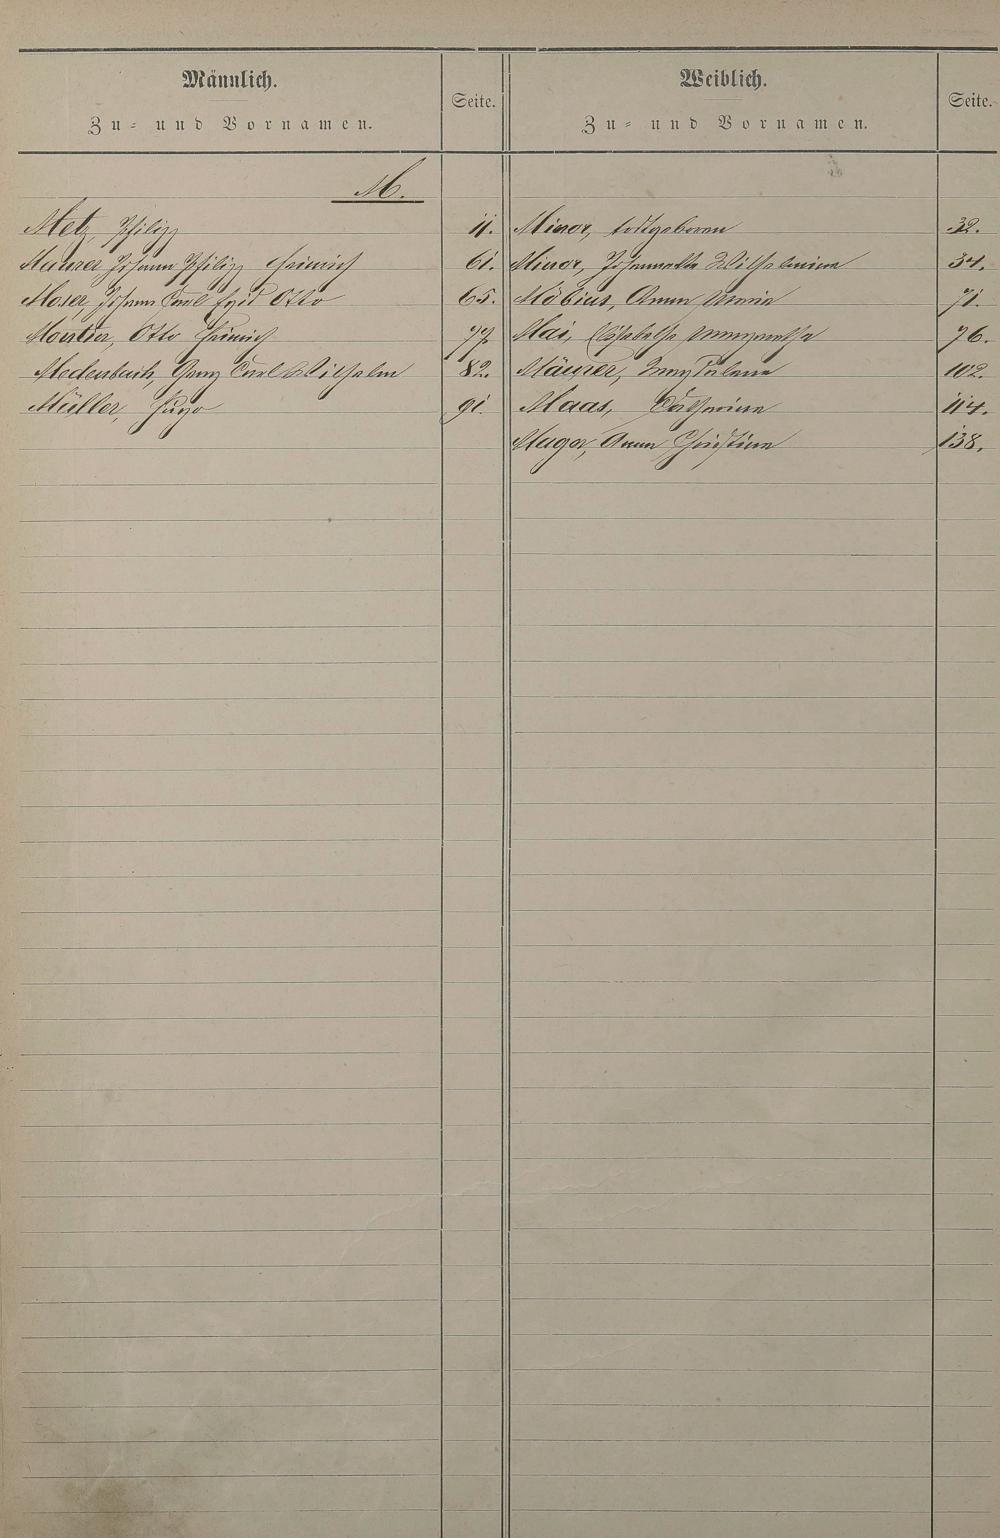 Männlich.
Zu- und Vornamen.
Seite.
Weiblich.
Zu- und Vornamen.
Seite.
M.
Metz, Philipp 11.
Maurer Johann Philipp Heinrich 61.
Moser, Johann Carl Otto 65.
Otto Heinrich 77.
Medenbach, Carl Wilhelm 82.
Müller, Hugo 91.
Minor, todtgeboren 32.
Minor, Johannette Wilhelmine 34.
Möbius, Anna Maria 71.
Mai, Elisabethe Margarethe 76.
Mäurer, 102.
Maas, Catharine 114.
Mager, Anna Christine 138.